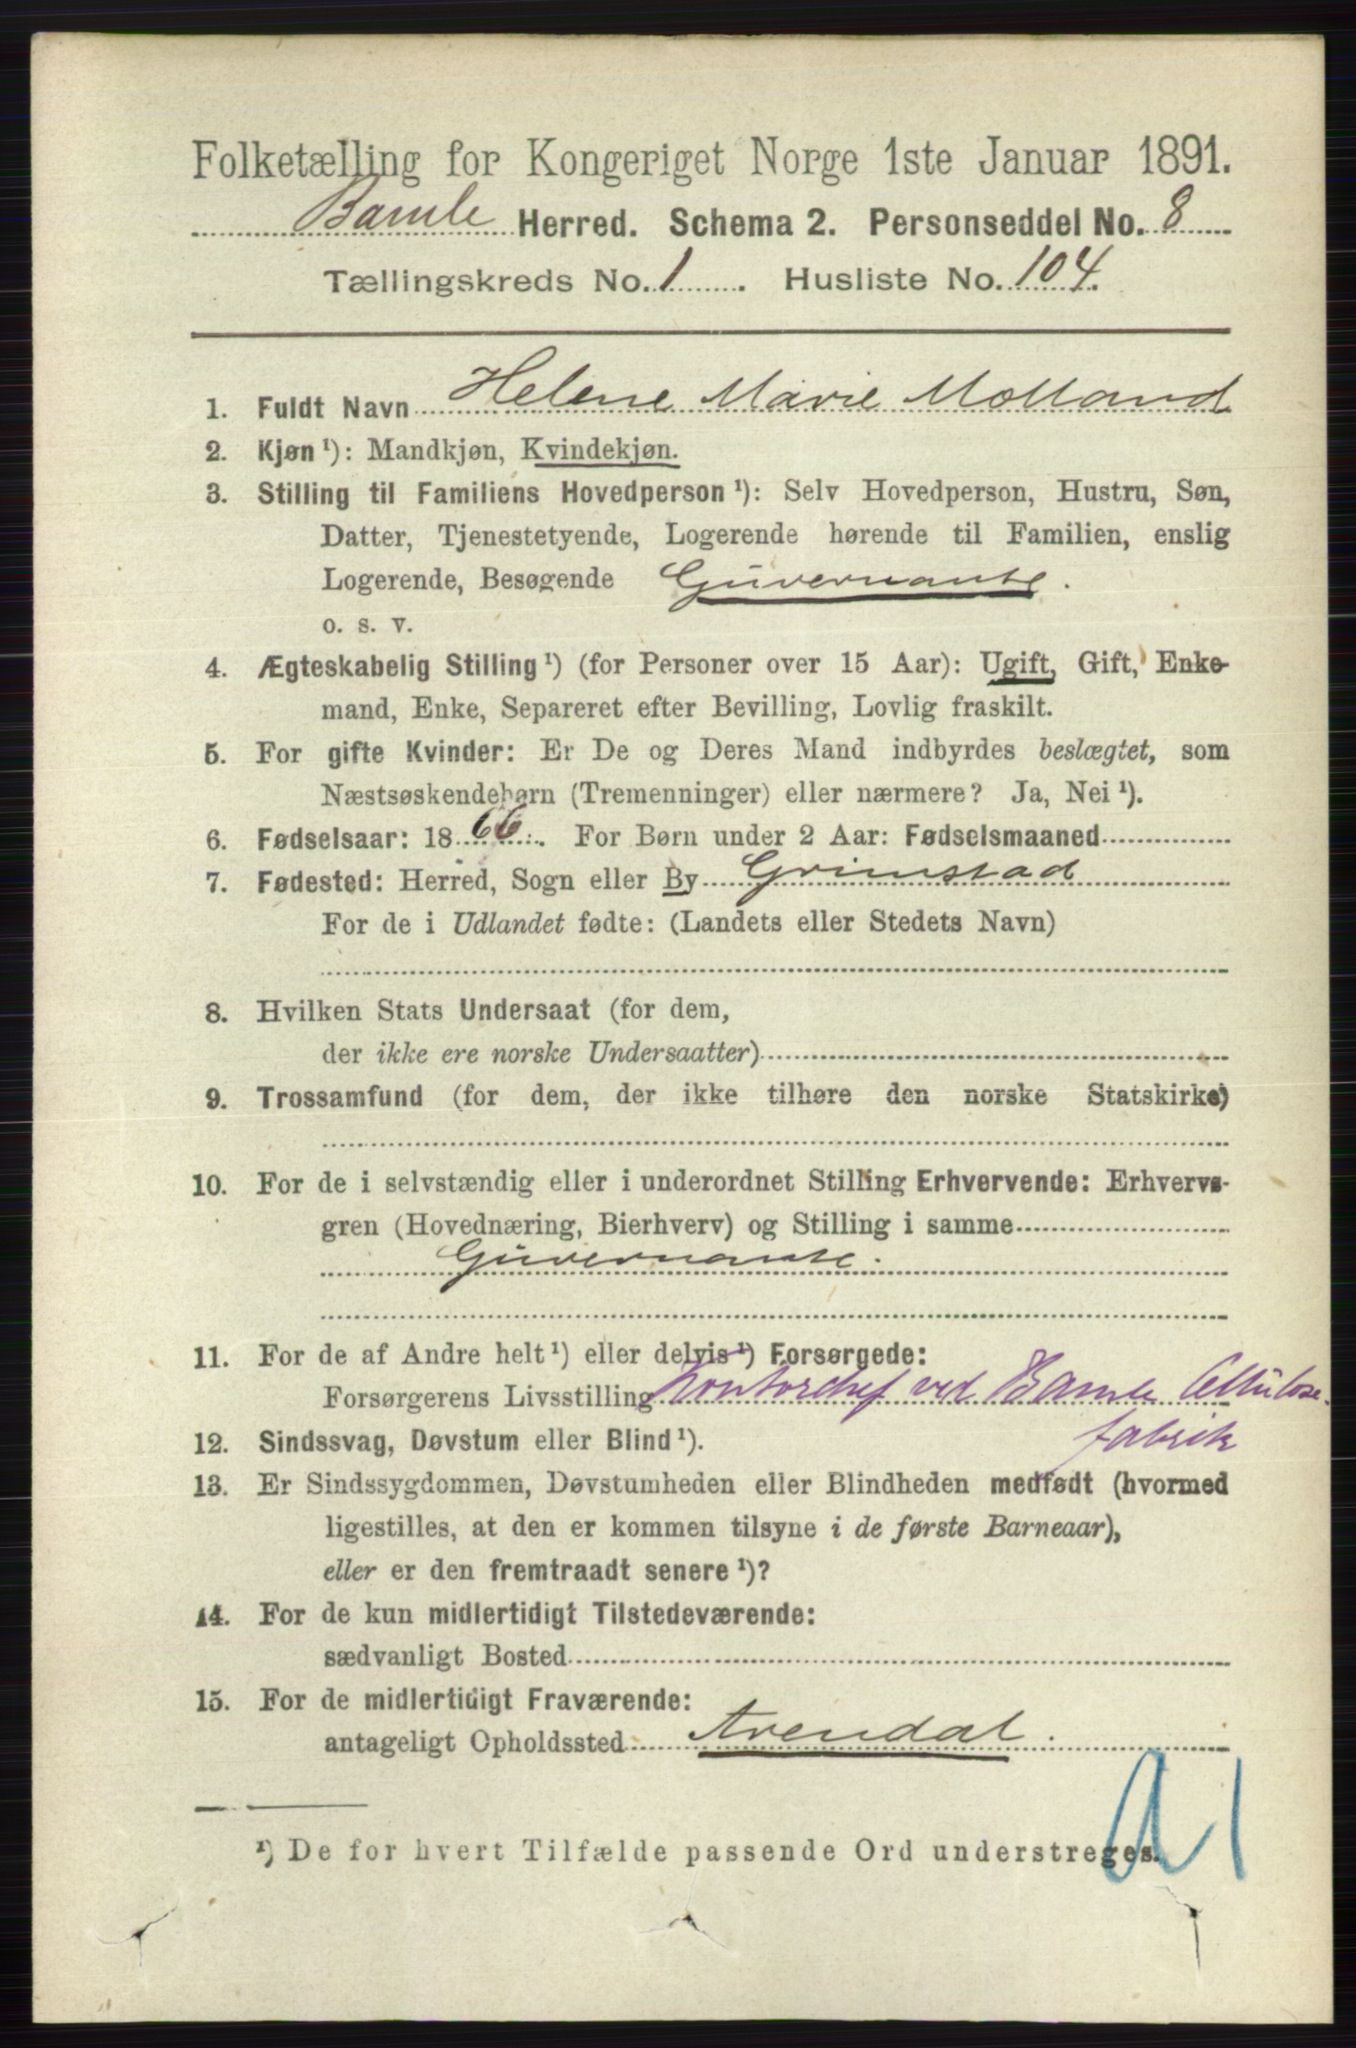 Folketælling for Kongeriget Norge 1ste Januar 1891.
Bamle Herred. Schema 2. Personseddel No. 8
Tællingskreds No. 1. Husliste No. 104.
1. Fuldt Navn Helene Marie Molland
2. Kjøn¹): Mandkjøn, Kvindekjøn.
3. Stilling til Familiens Hovedperson¹): Selv Hovedperson, Hustru, Søn,
Datter, Tjenestetyende, Logerende hørende til Familien, enslig
Logerende, Besøgende Guvernante.
o. s. v.
4. Ægteskabelig Stilling¹) (for Personer over 15 Aar): Ugift, Gift, Enke-
mand, Enke, Separeret efter Bevilling, Lovlig fraskilt.
5. For gifte Kvinder: Er De og Deres Mand indbyrdes beslægtet, som
Næstsøskendebørn (Tremenninger) eller nærmere? Ja, Nei¹).
6. Fødselsaar: 1866. For Børn under 2 Aar: Fødselsmaaned
7. Fødested: Herred, Sogn eller By Grimstad
For de i Udlandet fødte: (Landets eller Stedets Navn)
8. Hvilken Stats Undersaat (for dem,
der ikke ere norske Undersaatter)
9. Trossamfund (for dem, der ikke tilhøre den norske Statskirke)
10. For de i selvstændig eller i underordnet Stilling Erhvervende: Erhvervs-
gren (Hovednæring, Bierhverv) og Stilling i samme
Guvernante.
11. For de af Andre helt¹) eller delvis¹) Forsørgede:
Forsørgerens Livsstilling Kontorchef ved Bamle Cellulose-
fabrik
12. Sindssvag, Døvstum eller Blind¹).
13. Er Sindssygdommen, Døvstumheden eller Blindheden medfødt (hvormed
ligestilles, at den er kommen tilsyne i de første Barneaar),
eller er den fremtraadt senere¹)?
14. For de kun midlertidigt Tilstedeværende:
sædvanligt Bosted
15. For de midlertidigt Fraværende:
antageligt Opholdssted Arendal.
¹) De for hvert Tilfælde passende Ord understreges.